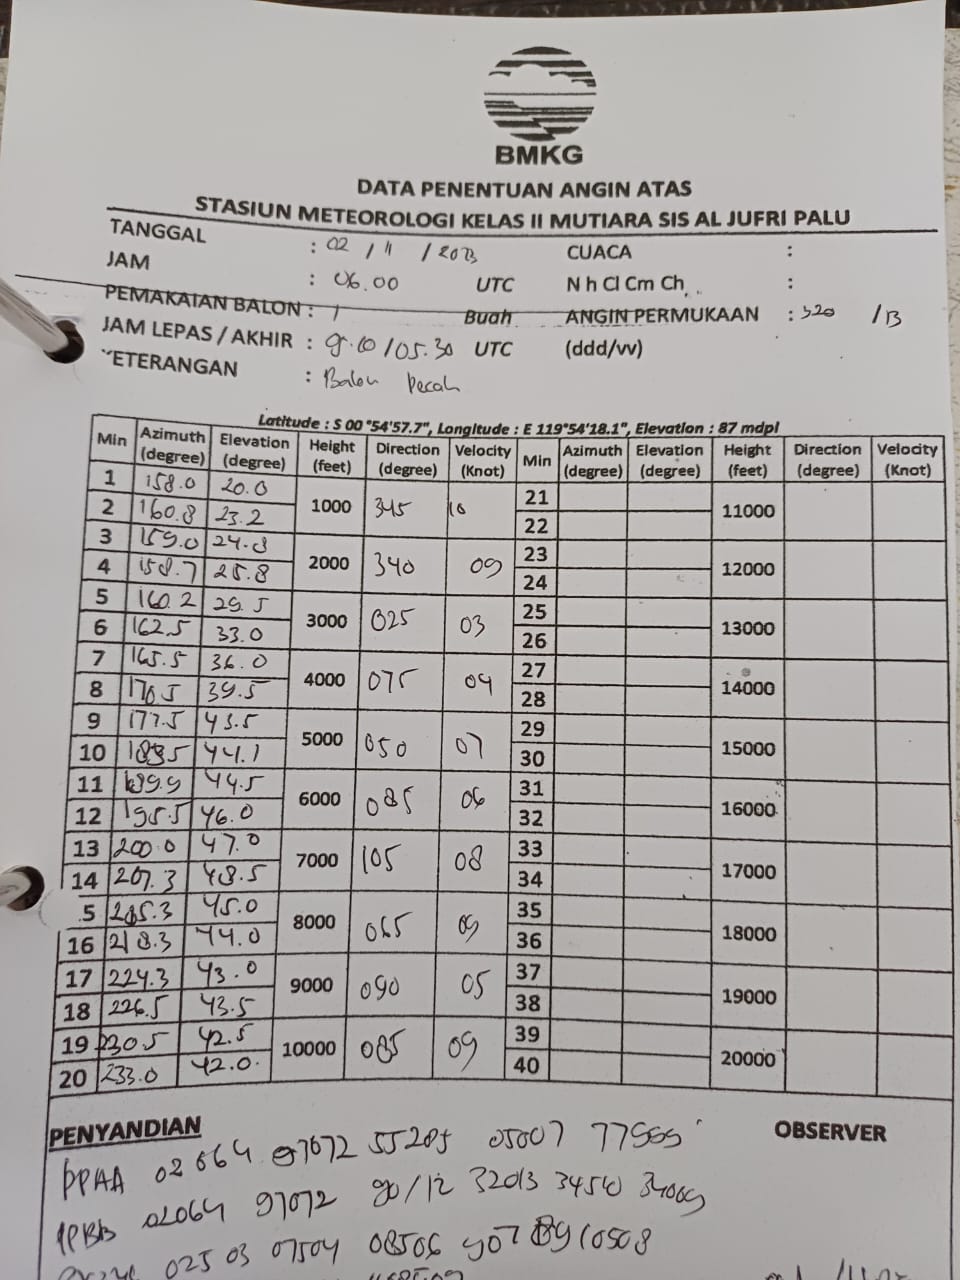 BMKG
DATA PENENTUAN ANGIN ATAS
STASIUN METEOROLOGI KELAS II MUTIARA SIS AL JUFRI PALU
TANGGAL : 02 / 11 / 2023 CUACA :
JAM : 06.00 UTC N h Cl Cm Ch :
PEMAKAIAN BALON : 1 Buah ANGIN PERMUKAAN : 320 / 13
JAM LEPAS / AKHIR : /05.30 UTC (ddd/vv)
KETERANGAN : Balon Pecah
Latitude : S 00 °54'57.7", Longitude : E 119°54'18.1", Elevation : 87 mdpl
Min Azimuth (degree) Elevation (degree) Height (feet) Direction (degree) Velocity (Knot) Min Azimuth (degree) Elevation (degree) Height (feet) Direction (degree) Velocity (Knot)
1 158.0 20.0 1000 345 10 21 11000
2 160.8 23.2 22
3 159.0 24.8 2000 340 09 23 12000
4 158.7 25.8 24
5 160.2 29.5 3000 025 03 25 13000
6 162.5 33.0 26
7 165.5 36.0 4000 075 04 27 14000
8 170.5 39.5 28
9 177.5 43.5 5000 050 07 29 15000
10 44.1 30
11 189.9 44.5 6000 085 06 31 16000
12 195.5 46.0 32
13 200.0 47.0 7000 105 08 33 17000
14 207.3 48.5 34
5 45.0 8000 065 09 35 18000
16 218.3 44.0 36
17 224.3 43.0 9000 090 05 37 19000
18 226.5 43.5 38
19 230.5 42.5 10000 085 09 39 20000
20 233.0 42.0 40
PENYANDIAN OBSERVER
PPAA 02064 97072 55285 05007 77999
PPBB 02064 97072 90/12 32013 34510 34009
02503 07504 08506 10508